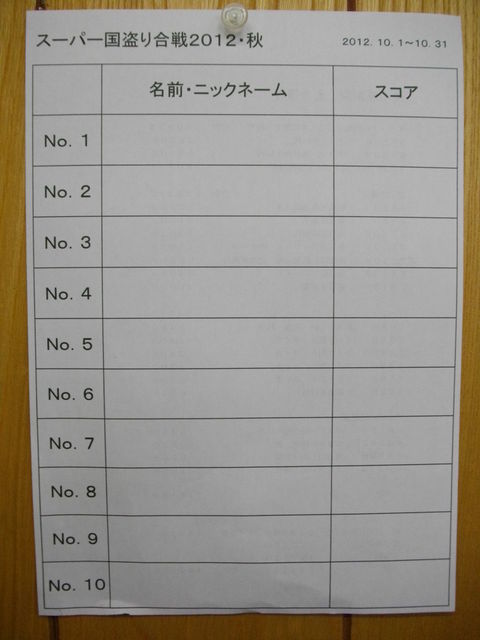 スーパー国盗り合戦2012・秋
2012. 10. 1～10. 31
名前・ニックネーム スコア
No. 1
No. 2
No. 3
No. 4
No. 5
No. 6
No. 7
No. 8
No. 9
No. 10